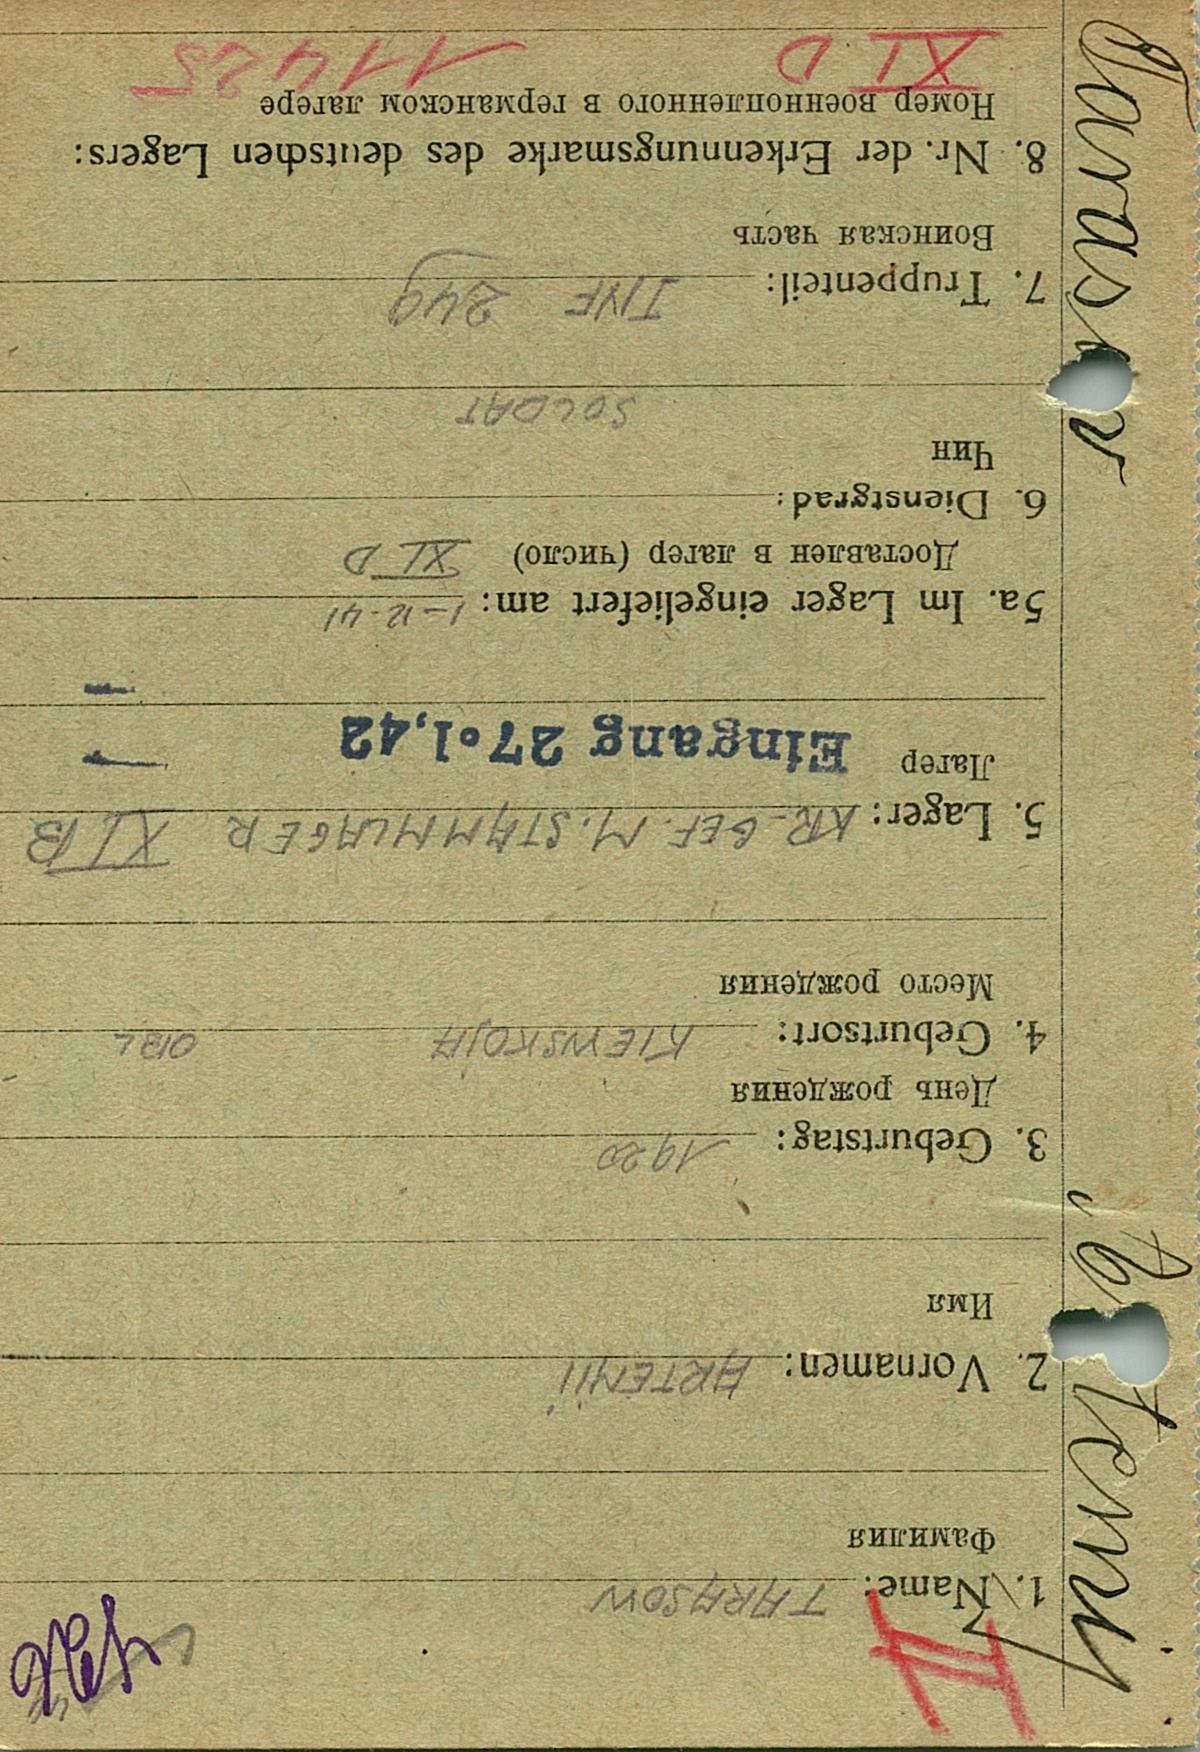 II
1. Name: TARASOW
Фамилия
2. Vornamen: ARTEMII
Имя
3. Geburtstag: 1920
День рождения
4. Geburtsort: KIEWSKOJA OBL
Место рождения
5. Lager: KR-GEF. M. STAMMLAGER XI B
Лагер
Eingang 27.1.42
5a. Im Lager eingeliefert am: 1-12-41
Доставлен в лагер (число) XI D
6. Dienstgrad:
Чин
SOLDAT
7. Truppenteil: INF 249
Воинская часть
8. Nr. der Erkennungsmarke des deutschen Lagers:
Номер военнопленного в германском лагере
XI D 11425
Tarasov